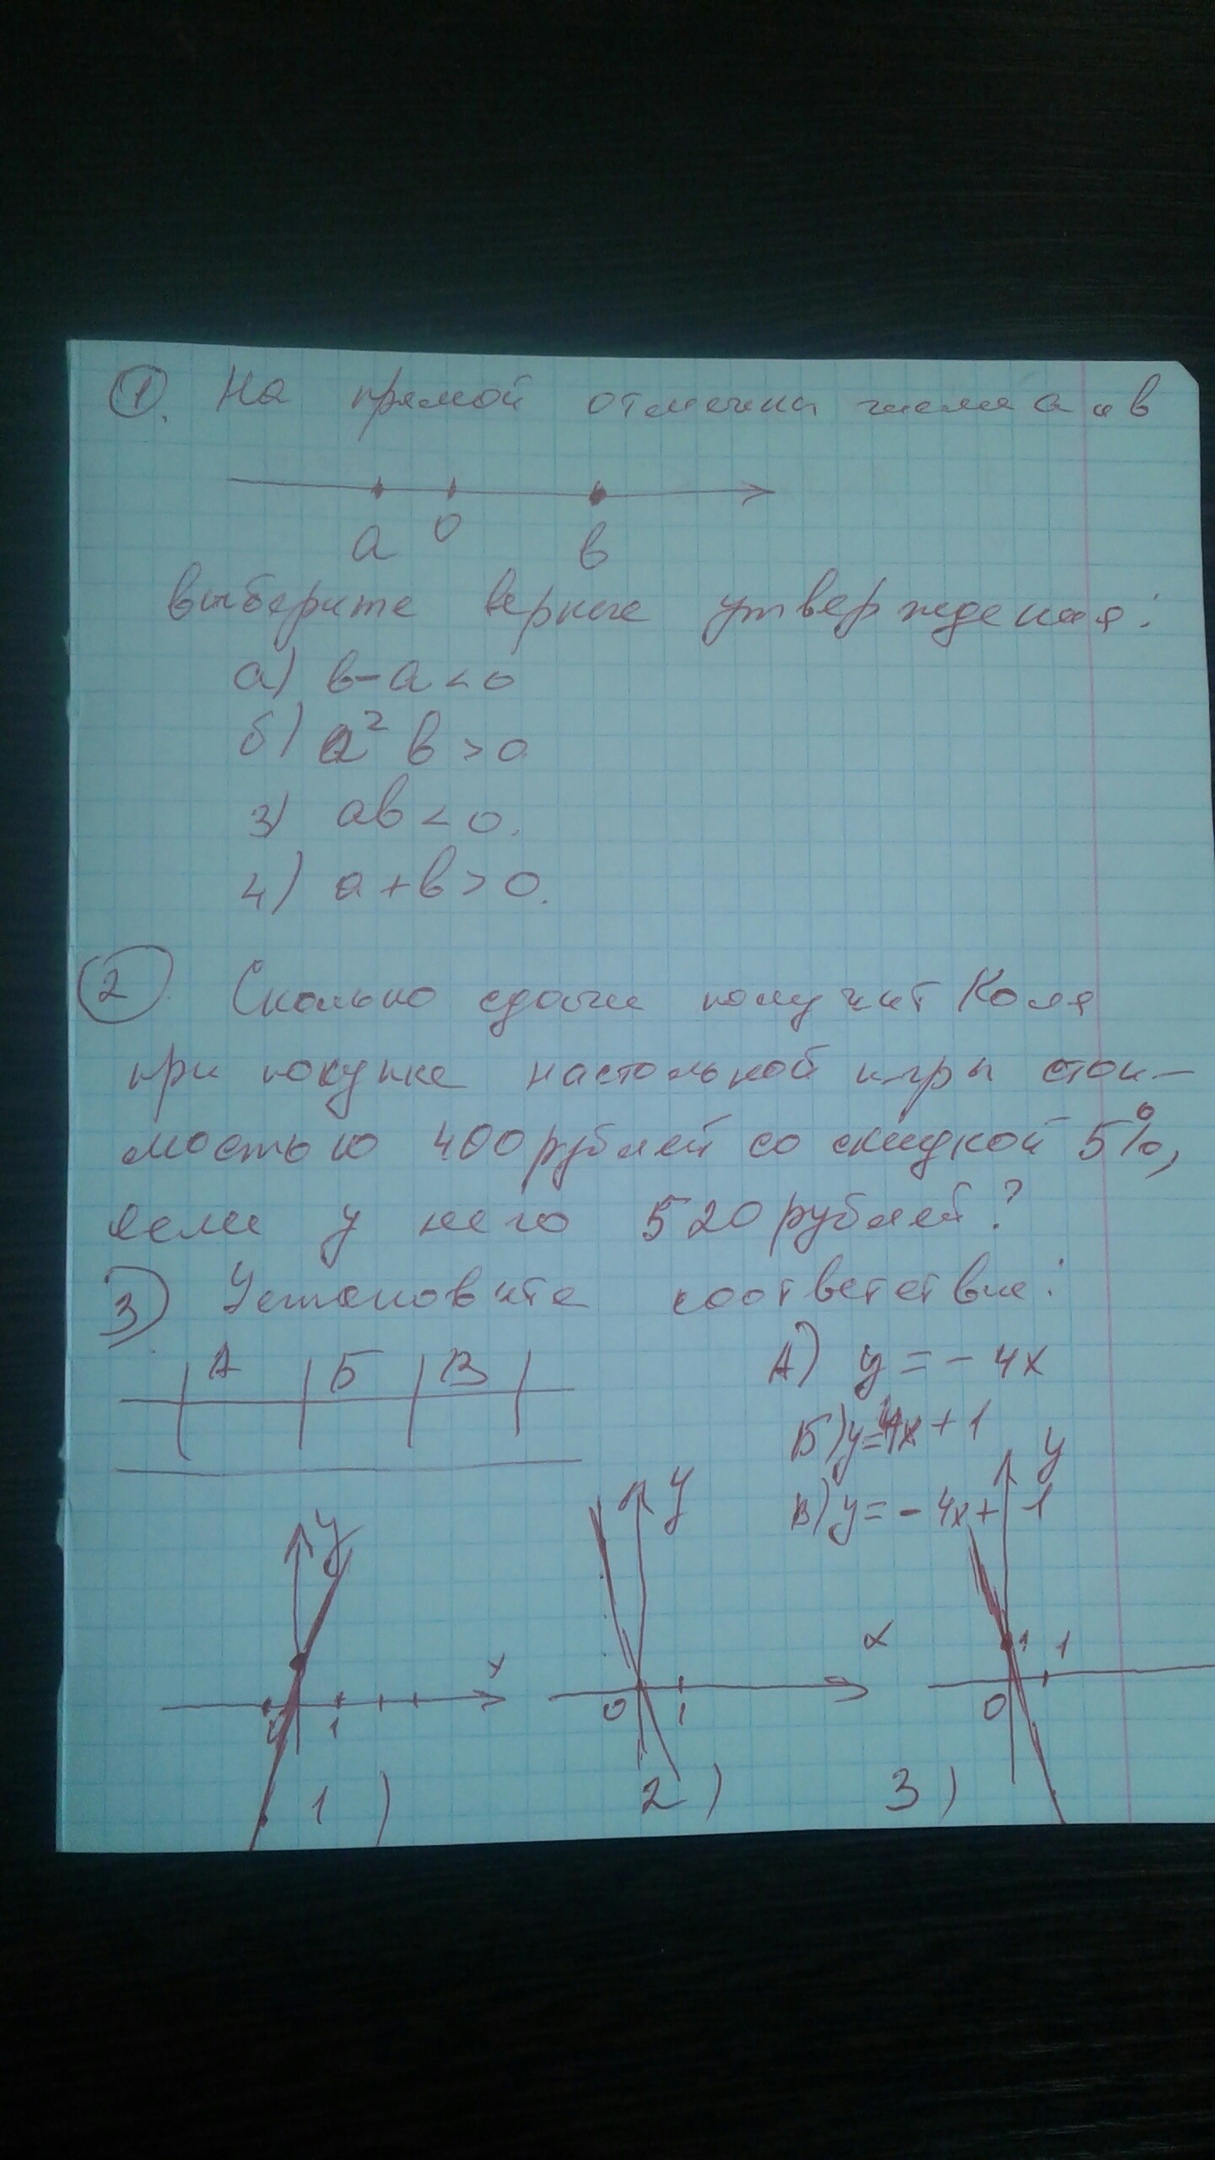 1. На прямой отмечены числа а и в
а 0 в
выберите верные утверждения:
а) в-а<0
б) а² в>0
3) ав<0.
4) а+в>0.
2. Сколько сдачи получит Коля
при покупке настольной игры стои-
мостью 400 рублей со скидкой 5%,
если у него 520 рублей?
3) Установите соответствие:
А Б В
А) y = - 4x
Б) y=4x + 1
В) y = - 4x + 1
y x 0 1
1)
y x 0 1
2)
y 1 1 0
3)